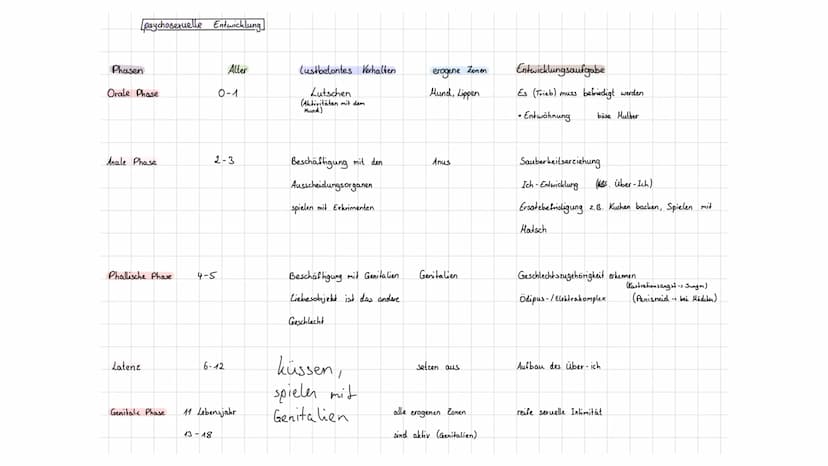 psychosexuelle Entwicklung
Phasen Alter Lustbetontes Verhalten erogene Zonen Entwicklungsaufgabe
Orale Phase 0-1 Lutschen Mund, Lippen Es (Trieb) muss befriedigt werden
(Aktivitäten mit dem
Mund)
• Entwöhnung böse Mutter
Anale Phase 2-3 Beschäftigung mit den Anus Sauberkeitserziehung
Ausscheidungsorganen Ich-Entwicklung Über-Ich)
spielen mit Exkrimenten Ersatzbefriedigung z.B. Kuchen backen, Spielen mit
Matsch
Phallische Phase 4-5 Beschäftigung mit Genitalien Genitalien Geschlechtszugehörigkeit erkennen
(Kastrationsangst → Jungen)
Liebesobjekt ist das andere Ödipus-/Elektrakomplex (Penisneid → bei Mädchen)
Geschlecht
Latenz 6-12 küssen, setzen aus Aufbau des Über-ich
spielen mit
Genitale Phase 11 Lebensjahr Genitalien alle erogenen Zonen reife sexuelle Intimität
13-18 sind aktiv (Genitalien)